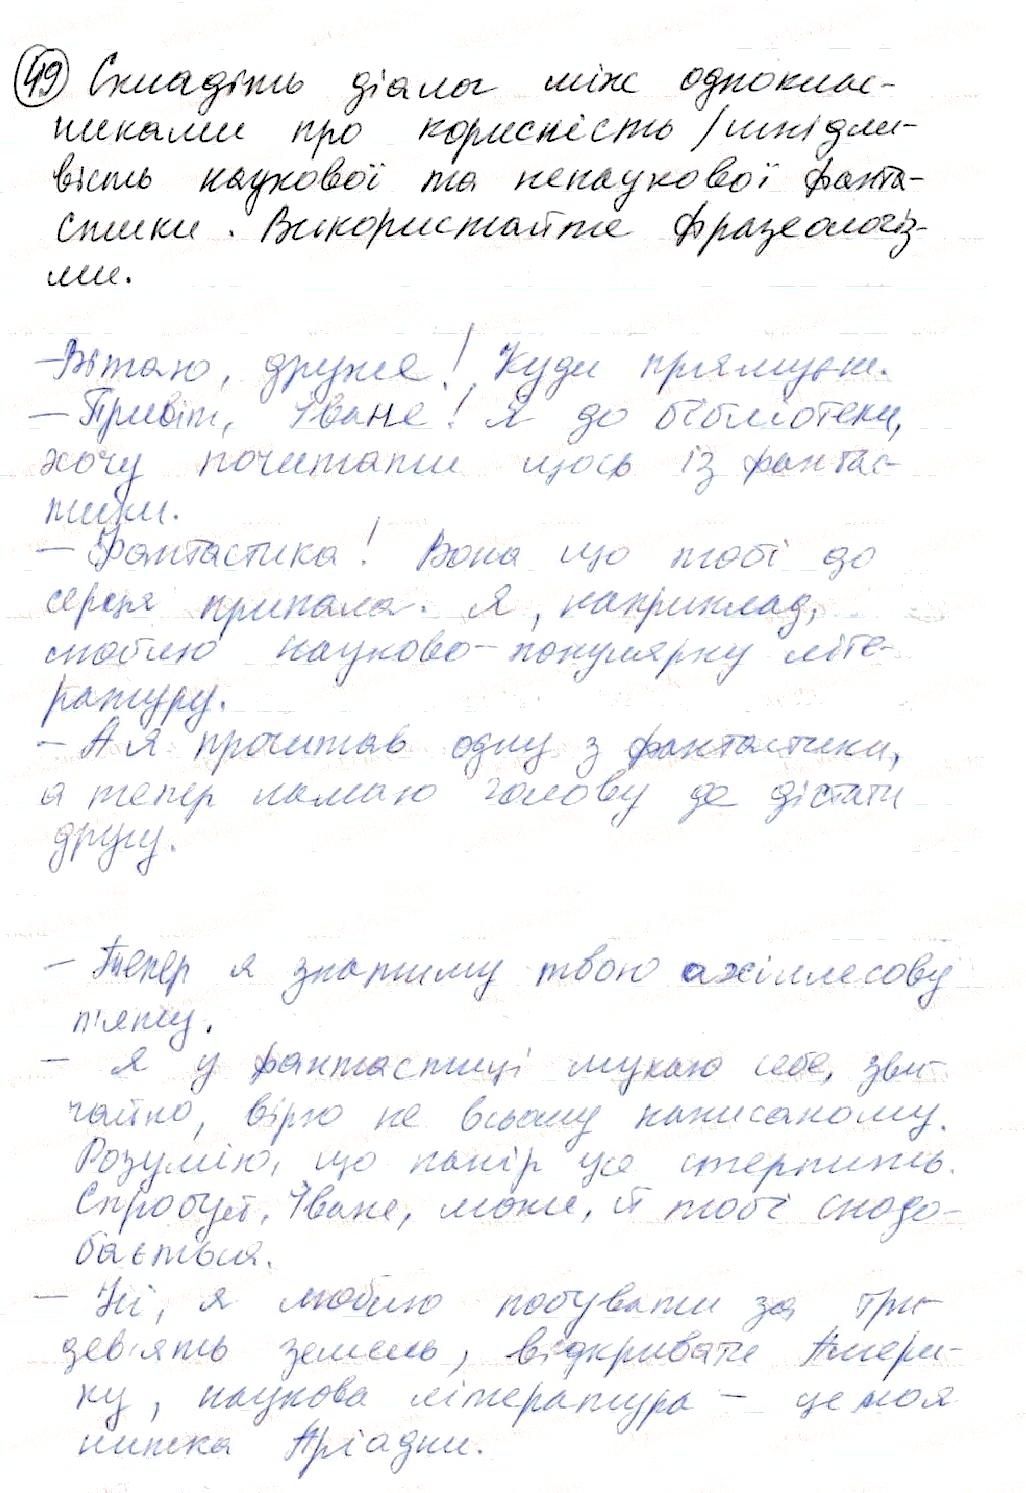 49 Складіть діалог між одноклас-
никами про корисність / шкідли-
вість наукової та ненаукової фанта-
стики. Використайте фразеологіз-
ми.
– Вітаю, друже! Куди прямуєш.
– Привіт, Іване! Я до бібліотеки,
хочу почитати щось із фантас-
тики.
– Фантастика! Вона що тобі до
серця припала. Я, наприклад,
люблю науково-популярну літе-
ратуру.
– А я прочитав одну з фантастики,
а тепер ламаю голову де дістати
другу.
– Тепер я знатиму твою ахіллесову
п'яту.
– Я у фантастиці шукаю себе, зви-
чайно, вірю не всьому написаному.
Розумію, що папір усе стерпить.
Спробуй, Іване, може, й тобі сподо-
бається.
– Ні, я люблю побувати за три-
дев'ять земель, відкривати Амери-
ку, наукова література – це моя
нитка Аріадни.